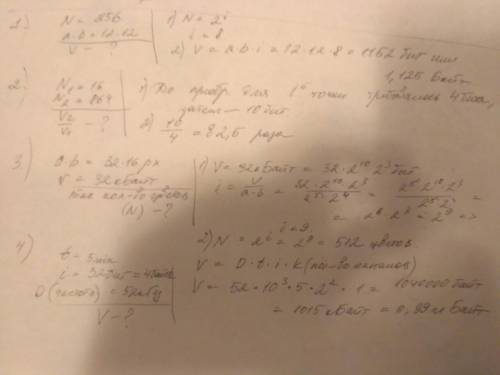 1.) N = 256
a·b = 12·12
V - ?
1) N = 2^i
i = 8
2) V = a·b·i = 12·12·8 = 1152 бит или
1,125 Байт
2.) N₁ = 16
N₂ = 864
V₂/V₁ - ?
1) До для 1й точки 4 бита,
10 бит
2) 10/4 = 2,5 раза
3.) a·b = 32·16 px
V = 32 кБайт
кол-во цветов
(N) - ?
1) V = 32 кБайт = 32·2^10·2^3 бит
i = V/(a·b) = (32·2^10·2^3)/(2^5·2^4) = (2^5·2^10·2^3)/(2^5·2^4) =
= 2^6·2^3 = 2^9 =>
i = 9
2) N = 2^i = 2^9 = 512 цветов
4) t = 5 min
i = 32 бит = 4 байт
D (частота) = 52 кГц
V - ?
V = D·t·i·k (кол-во каналов)
V = 52·10^3·5·2^2·1 = 1040000 байт
= 1015 кБайт = 0,99 мБайт